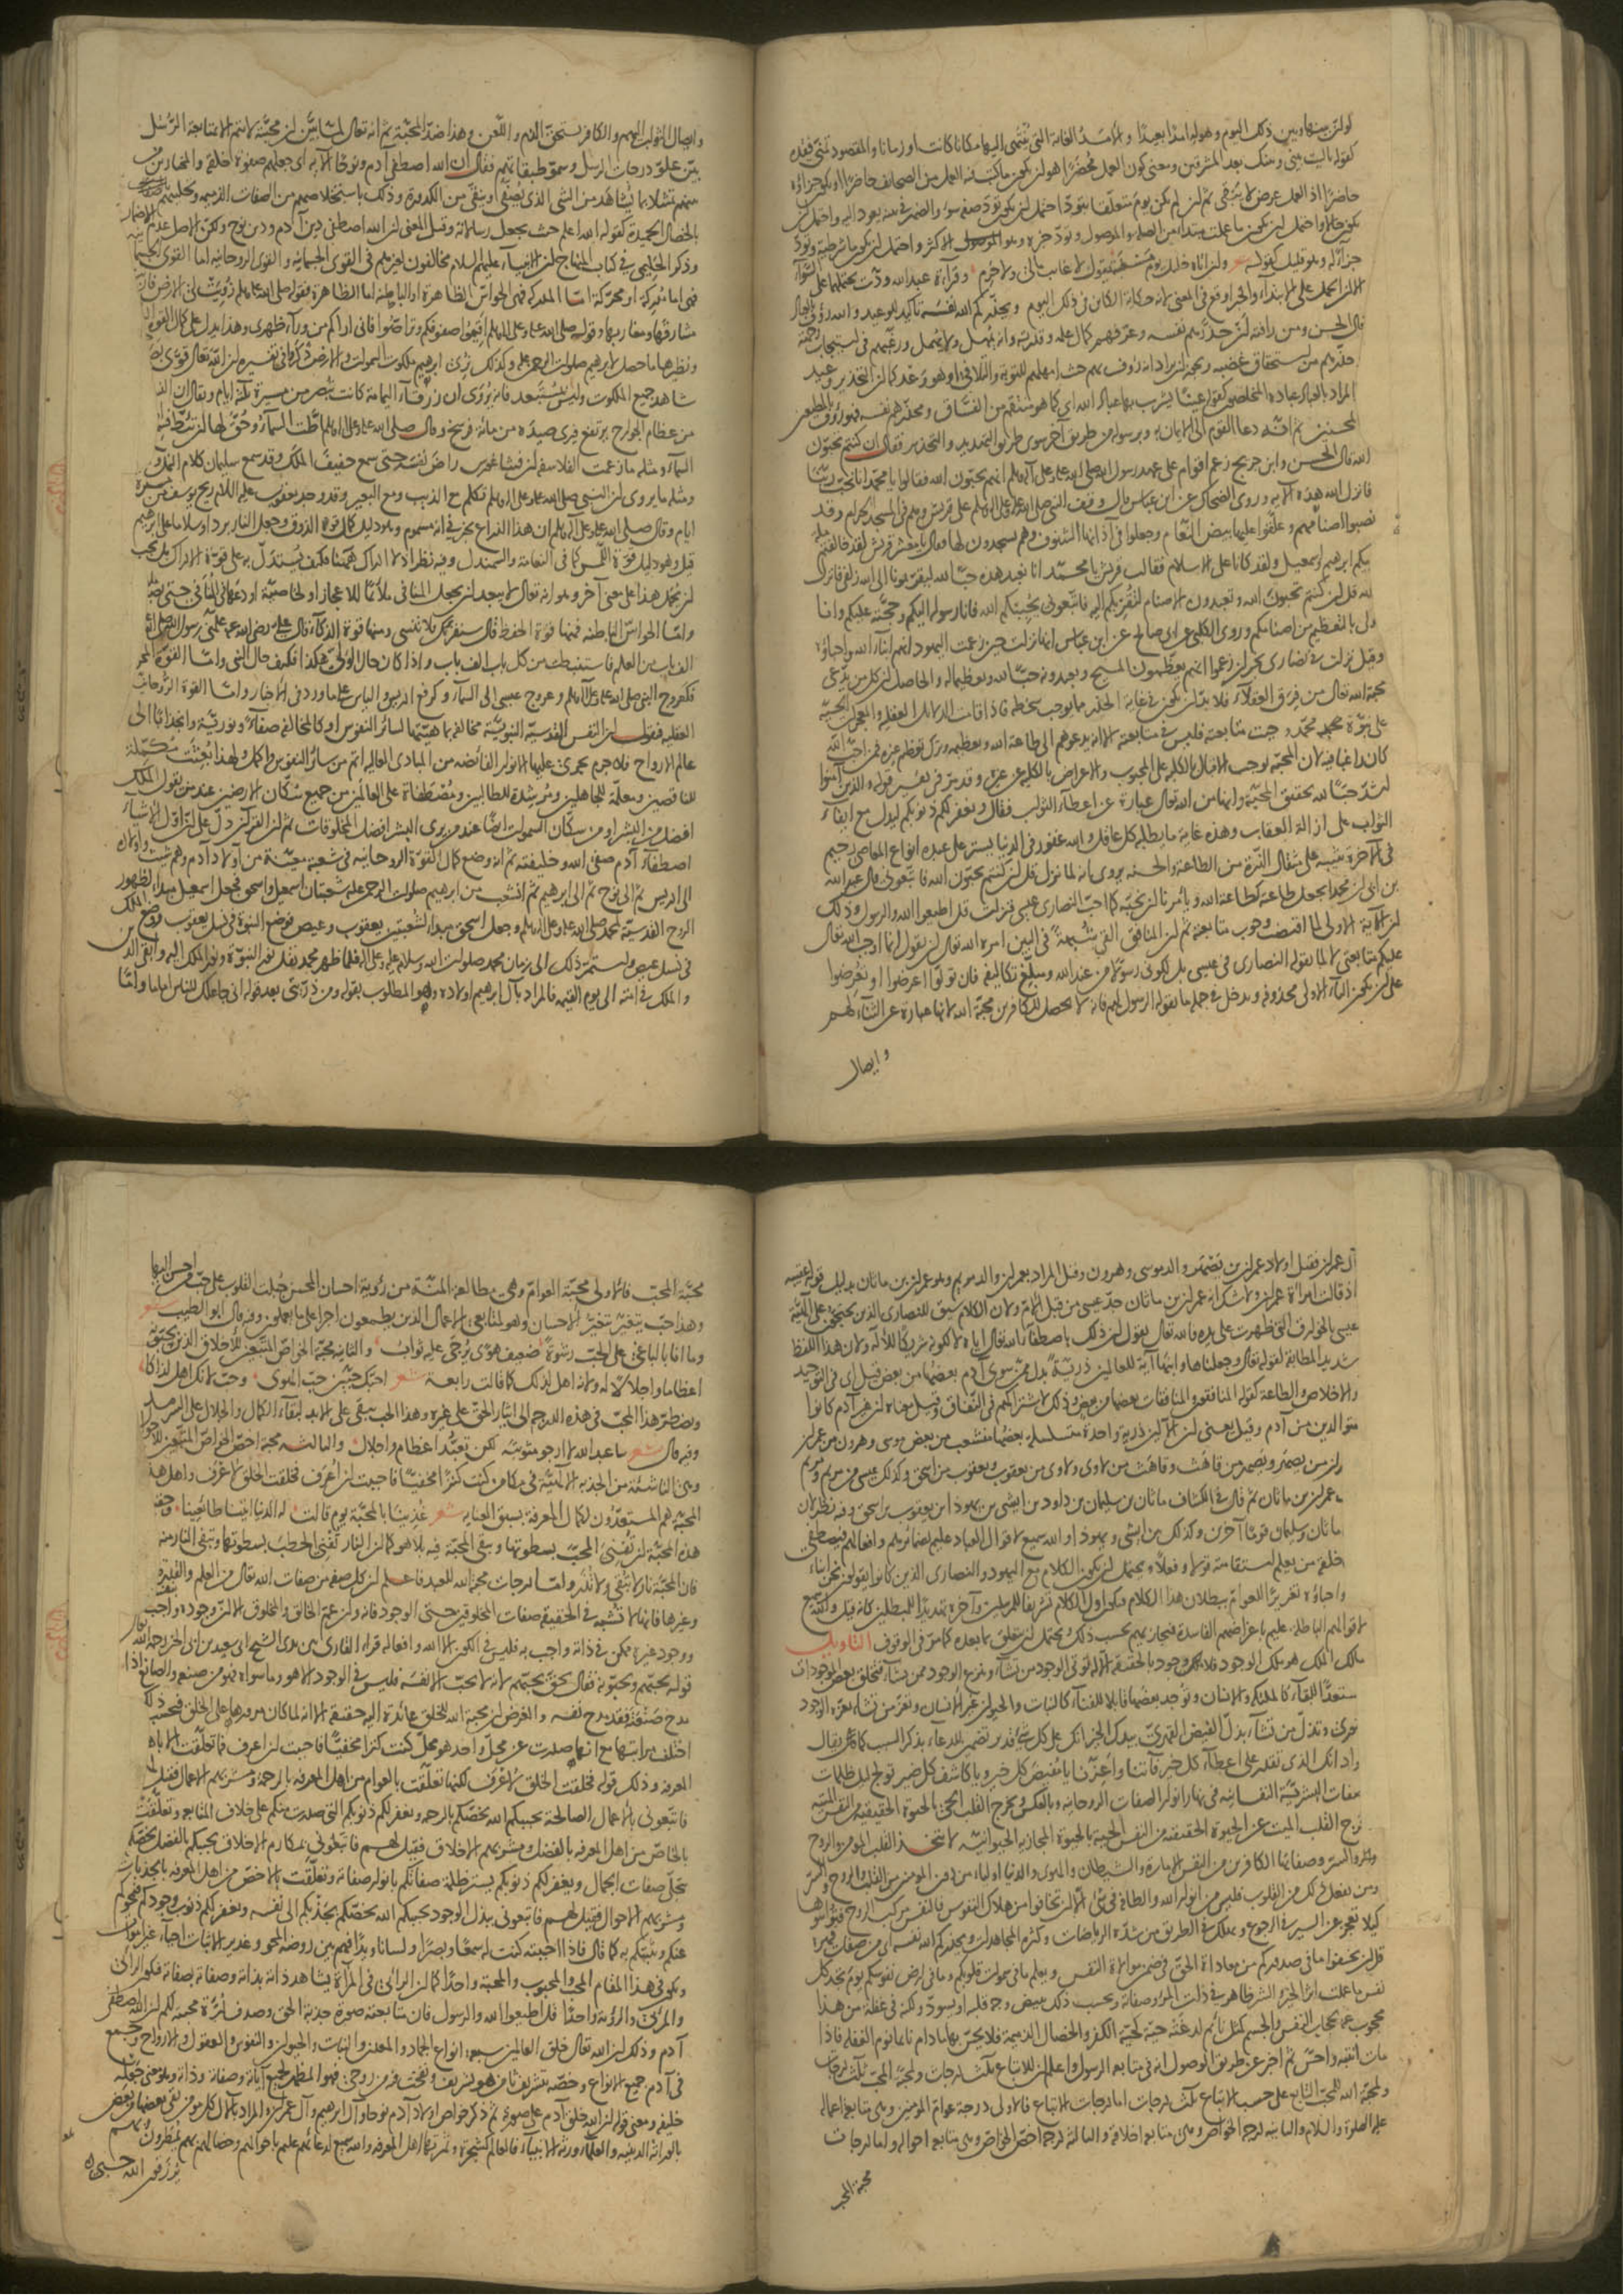 لو ان بينها وبين ذلك اليوم وهوله امدا بعيدا والامد الغاية التي ينتهى اليها مكانا كانت او زمانا والمقصود تمنى بعده
كقوله يا ليت بيني وبينك بعد المشرقين ومعنى كون العمل محضرا هو ان يكون ما كتب فيه العمل من الصحائف حاضرا او يكون جزاؤه
حاضرا اذ العمل عرض لا يبقى ثم ان لم يكن يوم متعلقا بتود احتمل ان يكون تود صفة سوء والضمير في بينه يعود اليه واحتمل ان
يكون حالا واحتمل ان يكون ما عملت مبتدأ من الصلة والموصول وتود خبره وهو الاكثر واحتمل ان يكون ما شرطية وتود
جزاء له وهو قليل كقوله شعر وان اتاه خليل يوم مسغبة يقول لا غائب مالي ولا حرم وقراءة عبد الله ودت يحتملهما على السواء
الا ان الحمل على الابتداء والخبر اوقع في المعنى لانه حكاية الكائن في ذلك اليوم ويحذركم الله نفسه تأكيد للوعيد والله رؤف بالعباد
قال الحسن ومن رافته ان حذرهم نفسه وعرفهم كمال علمه وقدرته وانه يمهل ولا يهمل ورغبهم في استيجاب رحمته
وحذرهم من استحقاق غضبه ويجوز ان يراد انه رؤف بهم حيث امهلهم للتوبة والتلافي او هو وعد كما ان التحذير وعيد
المراد بالعباد عباده المخلصون كقوله عينا يشرب بها عباد الله اي كما هو منتقم من الفساق ومحذرهم نفسه فهو رؤف بالمطيعين
المحسنين ثم انه دعا القوم الى الايمان به وبرسوله من طريق آخر سوى طريق التهديد والتحذير فقال ان كنتم تحبون
الله قال الحسن وابن جريج زعم اقوام على عهد رسول الله صلى الله عليه وعلى آله وسلم انهم يحبون الله فقالوا يا محمد انا نحب ربنا
فانزل الله هذه الاية وروى الضحاك عن ابن عباس قال وقف النبي صلى الله عليه وعلى آله وسلم على قريش وهم في المسجد الحرام وقد
نصبوا اصنامهم وعلقوا عليها بيض النعام وجعلوا في آذانها الشنوف وهم يسجدون لها فقال يا معشر قريش لقد خالفتم ملة
ابيكم ابراهيم واسمعيل ولقد كانا على الاسلام فقالت قريش يا محمد انا نعبد هذه حبا لله ليقربونا الى الله زلفى فانزل
الله قل ان كنتم تحبون الله وتعبدون الاصنام لتقربكم اليه فاتبعوني يحببكم الله فانا رسوله اليكم وحجته عليكم وانا
اولى بالتعظيم من اصنامكم وروى الكلبي عن ابي صالح عن ابن عباس انها نزلت حين زعمت اليهود انهم ابناء الله واحباؤه
وقيل نزلت في نصارى نجران زعموا انهم يعظمون المسيح ويعبدونه حبا لله وتعظيما له والحاصل ان كل من يدعي
محبة الله تعالى من فرق العقلاء فلا بد ان يكون في غاية الحذر مما يوجب سخطه فاذا قامت الدلائل العقلية والمعجزات الحسية
على نبوة محمد وجبت متابعته فليس في متابعته الا انه يدعوهم الى طاعة الله وتعظيمه وترك تعظيم غيره فمن احب الله
كان راغبا فيه لان المحبة توجب الاقبال بالكلية على المحبوب والاعراض بالكلية عن غيره وقد مر في تفسير قوله والذين آمنوا
اشد حبا لله تحقيق المحبة وانها من الله تعالى عبارة عن اعطاء الثواب فقال ويغفر لكم ذنوبكم ليدل مع ايفاء
الثواب على ازالة العقاب وهذه غاية ما يطلبه كل عاقل والله غفور في الدنيا يستر على عبده انواع المعاصي رحيم
في الاخرة يثيبه على مثقال الذرة من الطاعة والحسنة يروى انه لما نزل قل ان كنتم تحبون الله فاتبعوني قال عبد الله
بن ابي ان محمدا يجعل طاعته كطاعة الله ويأمرنا ان نحبه كما احب النصارى عيسى فنزلت قل اطيعوا الله والرسول وذلك
ان الآية الاولى لما اقتضت وجوب متابعته ثم ان المنافق القى شبهة في البين امره الله تعالى ان يقول انما اوجب الله تعالى
عليكم متابعتي لا لما يقوله النصارى في عيسى بل لكوني رسولا من عند الله ومبلغ تكاليفه فان تولوا اعرضوا او تعرضوا
على ان يكون التاء الاولى محذوفة ويدخل في جملة ما يقوله الرسول لهم فانه لا يحصل للكافرين محبة الله لانها عبارة عن الثناء لهم
وايصال
وايصال الثواب اليهم والكافر يستحق الذم واللعن وهذا ضد المحبة ثم انه تعالى لما بين ان محبته لا تتم الا بمتابعة الرسل
بين علو درجات الرسل وسمو طبقاتهم فقال ان الله اصطفى آدم ونوحا الآية اي جعلهم صفوة خلقه والمختارين من
بينهم تمثيلا بما يشاهد من الشيء الذي يصفى وينقى من الكدورة وذلك باستخلاصهم من الصفات الذميمة وتحليتهم
بالخصال الحميدة كقوله الله اعلم حيث يجعل رسالاته وقيل المعنى ان الله اصطفى دين آدم ودين نوح ولكن الاصل عدم الاضمار
وذكر الحليمي في كتاب المنهاج ان الانبياء عليهم السلام مخالفون لغيرهم في القوى الجسمانية والقوى الروحانية اما القوى الجسمانية
فهي اما مدركة او محركة اما المدركة فهي الحواس الظاهرة او الباطنة اما الظاهرة فقوله صلى الله عليه وسلم زويت لي الارض فاريت
مشارقها ومغاربها وقوله صلى الله عليه وعلى آله وسلم اقيموا صفوفكم وتراصوا فاني اراكم من وراء ظهري وهذا يدل على كمال القوة
ونظيرها ما حصل لابراهيم صلوات الرحمن عليه وكذلك نري ابرهيم ملكوت السموات والارض ذكر في تفسيره ان الله تعالى قوى بصره
شاهد جميع الملكوت وليس يستبعد فانه يروى ان زرقاء اليمامة كانت تبصر من مسيرة ثلثة ايام ويقال ان النسر
من عظام الجوارح يرتفع فيرى صيده من مائة فرسخ وقال صلى الله عليه وعلى آله وسلم اطت السماء وحق لها ان تئط فسمع
السماء ومثله ما زعمت الفلاسفة ان فيثاغورس راض نفسه حتى سمع حفيف الفلك وقد سمع سليمان كلام النمل
ومثله ما يروى ان النبي صلى الله عليه وعلى آله وسلم تكلم مع الذيب ومع البعير وقد وجد يعقوب عليه السلام ريح يوسف من مسيرة
ايام وقال صلى الله عليه وعلى آله وسلم ان هذا الذراع يخبرني انه مسموم وهو دليل كمال قوة الذوق وجعل النار بردا وسلاما على ابرهيم
قيل وهو دليل قوة اللمس كما في النعامة والسمندل وفيه نظر اذ لا ادراك ههنا فكيف يستدل به على قوة الادراك بل يجب
ان يحمل هذا على معنى آخر وهو انه تعالى لا يبعد ان يجعل المنافي ملائما للاعجاز او لخاصية اودعها في المنافي حتى يصير
واما الحواس الباطنة فمنها قوة الحفظ قال سنقرئك فلا تنسى ومنها قوة الذكاء قال علي رضي الله عنه علمني رسول الله صلى الله
الف باب من العلم فاستنبطت من كل باب الف باب واذا كان حال الولي هكذا فكيف حال النبي واما القوة المحركة
فكعروج النبي صلى الله عليه وعلى آله وسلم وعروج عيسى الى السماء وكرفع ادريس والياس على ما ورد في الاخبار واما القوة الروحانية
العقلية فنقول ان النفس القدسية النبوية مخالفة بماهيتها لسائر النفوس او كالمخالفة صفاء ونورية وانجذابا الى
عالم الارواح فلا جرم تجرى عليها الانوار الفائضة من المبادي العالية اتم من سائر النفوس واكمل ولهذا بعثت مكملة
للناقصين ومعلمة للجاهلين ومرشدة للطالبين ومصطفاة على العالمين من جميع سكان الارضين عند من يقول الملك
افضل من البشر او من سكان السموات ايضا عند من يرى البشر افضل المخلوقات ثم ان القرآن دل على ان اول الانبياء
اصطفاء آدم صفي الله وخليفته ثم انه وضع كمال القوة الروحانية في شعبة معينة من اولاد آدم وهم شيث واولاده
الى ادريس ثم الى نوح ثم الى ابرهيم ثم انشعب من ابرهيم صلوات الرحمن عليه شعبتان اسمعيل واسحق فجعل اسمعيل مبدأ لظهور
الروح القدسية لمحمد صلى الله عليه وعلى آله وسلم وجعل اسحق مبدأ لشعبتين يعقوب وعيص فوضع النبوة في نسل يعقوب ووضع الملك
في نسل عيص واستمر ذلك الى زمان محمد صلوات الله وسلامه عليه وعلى آله فلما ظهر محمد نقل نور النبوة ونور الملك اليه وابقى الدين
والملك في امته الى يوم القيمة فالمراد بآل ابرهيم اولاده وهو المطلوب بقوله ومن ذريتي بعد قوله اني جاعلك للناس اماما واما
آل عمران فقيل اولاد عمران بن يصهر والد موسى وهرون وقيل المراد بعمران والد مريم وهو عمران بن ماثان بدليل قوله عقيبه
اذ قالت امرأة عمران ولا شك انه عمران بن ماثان جد عيسى من قبل الام ولان الكلام سيق للنصارى الذين يحتجون على الهية
عيسى بالخوارق التي ظهرت على يده فالله تعالى يقول ان ذلك باصطفاء الله تعالى اياه لا لكونه شريكا للاله ولان هذا اللفظ
شديد المطابقة لقوله تعالى وجعلناها وابنها آية للعالمين ذرية بدل ممن سوى آدم بعضها من بعض قيل اي في التوحيد
والاخلاص والطاعة كقوله المنافقون والمنافقات بعضهم من بعض وذلك لاشتراكهم في النفاق وقيل معناه ان غير آدم كانوا
متوالدين من آدم وقيل يعني ان الآلين ذرية واحدة متسلسلة بعضها متشعب من بعض موسى وهرون من عمران
وعمران من يصهر ويصهر من قاهث وقاهث من لاوي ولاوي من يعقوب ويعقوب من اسحق وكذلك عيسى من مريم ومريم
من عمران بن ماثان ثم قال في الكشاف ماثان بن سليمان بن داود بن ايشى بن يهودا بن يعقوب بن اسحق وفيه نظر لان
ماثان وسليمان قوما آخرين وكذلك بين ايشى ويهودا والله سميع لاقوال العباد عليم بضمائرهم وافعالهم فيصطفي
خلقه من يعلم استقامته قولا وفعلا ويحتمل ان يكون الكلام مع اليهود والنصارى الذين كانوا يقولون نحن ابناء
واحباؤه تغريرا للعوام مع علمهم ببطلان هذا الكلام فيكون اول الكلام تشريفا للمرسلين وآخره تهديدا للمبطلين كانه قيل والله سميع
لاقوالهم الباطلة عليم باغراضهم الفاسدة فيجازيهم بحسب ذلك ويحتمل ان يتعلق بما بعده كما مر في الوقوف التاويل
مالك الملك هو ملك الوجود فلا مالك وجود بالحقيقة الا له تؤتي الوجود من تشاء وتنزع الوجود ممن تشاء فتخلق بعض الموجودات
مستعدا للبقاء كالملئكة والانسان وتوجد بعضها قابلا للفناء كالنبات والحيوان غير الانسان وتعز من تشاء بعزة الوجود
النوري وتذل من تشاء بذل القبض القهري بيدك الخير انك على كل شيء قدير تضمين للدعاء بذكر السبب كما يقال
للجواد انك الذي تقدر على اعطاء كل خير فآتنا واعزنا يا مفيض كل خير ويا كاشف كل ضير تولج ليل ظلمات
الصفات البشرية النفسانية في نهار انوار الصفات الروحانية وبالعكس وتخرج القلب الحي بالحيوة الحقيقية من النفس الميتة
وتخرج القلب الميت عن الحيوة الحقيقية من النفس الحية بالحيوة المجازية الحيوانية لا يتخذ القلب المؤمن والروح
والسر وصفاتها الكافرين من النفس الامارة والشيطان والهوى والدنيا اولياء من دون المؤمنين من القلب والروح والسر
ومن يفعل ذلك من القلوب فليس من انوار الله والطافه في شيء الا ان تخافوا من هلاك النفوس فالنفس مركب الروح فتواسوها
كيلا تعجز عن السير في الرجوع وتهلك في الطريق من شدة الرياضات وكثرة المجاهدات ويحذركم الله نفسه اي من صفات قهره
قل ان تخفوا ما في صدوركم من معاداة الحق في ضمن موالاة النفس ويعلم ما في سموات قلوبكم وما في ارض نفوسكم يوم تجد كل
نفس ما عملت اثر الخير والشر ظاهر في ذات المرء وصفاته وبحسب ذلك يبيض وجه قلبه او يسود ولكنه في غفلة من هذا
محجوب عنه بحجاب النفس والجسم كمثل نائم لدغته حية كحية الكفر والخصال الذميمة فلا يحس بها ما دام نائما نوم الغفلة فاذا
مات انتبه واحس ثم اخبر عن طريق الوصول انه في متابعة الرسول واعلم ان للاتباع ثلث درجات ولمحبة المحب ثلث درجات
ولمحبة الله للمحب التابع على حسب الاتباع ثلث درجات اما درجات الاتباع فالاولى درجة عوام المؤمنين وهي متابعة اعماله
عليه الصلوة والسلام والثانية درجة الخواص وهي متابعة اخلاقه والثالثة درجة اخص الخواص وهي متابعة احواله واما درجات
محبة المحب
محبة المحب فالاولى محبة العوام وهي مطالعة المنة من رؤية احسان المحسن جبلت القلوب على حب من احسن اليها
وهذا حب يتغير بتغير الاحسان وهو لمتابعي الاعمال الذين يطمعون في اجر على ما يعملون وفيه قال ابو الطيب شعر
وما انا بالباغي على الحب رشوة ضعيف هوى يرجى عليه ثواب والثانية محبة الخواص المتبعين للاخلاق الذين يحبونه
اعظاما واجلالا له ولانه اهل لذلك كما قالت رابعة شعر احبك حبين حب الهوى وحب لانك اهل لذاكا
ويضطر هذا المحب في هذه الدرجة الى ايثار الحق على غيره وهذا الحب يبقى على الابد لبقاء الكمال والجلال على السرمد
وفيه قال شعر ساعبد الله لا ارجو مثوبته لكن تعبد اعظام واجلال والثالثة محبة اخص الخواص المتبعين للاحوال
وهي الناشئة من الجذبة الالهية في مكامن كنت كنزا مخفيا فاحببت ان اعرف فخلقت الخلق لاعرف واهل هذه
المحبة هم المستعدون لكمال المعرفة بسبق العناية شعر غذينا بالمحبة يوم قالت له الدنيا اتينا طائعينا وحقيقة
هذه المحبة ان يفني المحب بسطوتها وتبقى المحبة فيه بلا هو كما ان النار تفني الحطب بسطوتها وتبقى النار منه
فان المحبة نار لا تبقي ولا تذر واما درجات محبة الله للعبد فاعلم ان كل صفة من صفات الله تعالى من العلم والقدرة
وغيرها فانها لا تشبه في الحقيقة صفات المخلوقين حتى الوجود فانه وان عم الخالق والمخلوق الا ان وجوده واجب
ووجود غيره ممكن في ذاته واجب به فليس في الكون الا الله وافعاله قرأ القارئ بين يدي الشيخ ابي سعيد بن ابي الخير رحمه الله
قوله يحبهم ويحبونه فقال بحق يحبهم لانه لا يحب الا نفسه فليس في الوجود الا هو وما سواه فهو من صنعه والصانع اذا
مدح صنعته فقد مدح نفسه والغرض ان محبة الله للخلق عائدة اليه حقيقة الا انه لما كان مرورها على الخلق فبحسب ذلك
اختلفت مراتبها مع انها صدرت عن محل واحد هو محل كنت كنزا مخفيا فاحببت ان اعرف فما تعلقت الا باهل
المعرفة وذلك قوله فخلقت الخلق لاعرف لكنها تعلقت بالعوام من اهل المعرفة بالرحمة ومشربهم الاعمال فقيل لهم
فاتبعوني بالاعمال الصالحة يحببكم الله يخصكم بالرحمة ويغفر لكم ذنوبكم التي صدرت منكم على خلاف المتابعة وتعلقت
بالخاص من اهل المعرفة بالفضل ومشربهم الاخلاق فقيل لهم فاتبعوني بمكارم الاخلاق يحببكم بالفضل يخصكم
بتجلي صفات الجمال ويغفر لكم ذنوبكم يستر ظلمة صفاتكم بانوار صفاته وتعلقت بالاخص من اهل المعرفة بالجذبات
ومشربهم الاحوال فقيل لهم فاتبعوني ببذل الوجود يحببكم الله يخصكم بجذبكم الى نفسه ويغفر لكم ذنوب وجودكم فيمحوكم
عنكم ويثبتكم به كما قال فاذا احببته كنت له سمعا وبصرا ولسانا ويدا فهم بين روضة المحو وغدير الاثبات احياء غير اموات
ويكون في هذا المقام المحب والمحبوب والمحبة واحدا كما ان الرائي في المرآة يشاهد ذاته بذاته وصفاته بصفاته فيكون الرائي
والمرئي والرؤية واحدا قل اطيعوا الله والرسول فان متابعته صورة جذبة الحق وصدف درة محبته لكم ان الله اصطفى
آدم وذلك ان الله تعالى خلق العالمين سبعة انواع الجماد والمعدن والنبات والحيوان والنفوس والعقول والارواح وجمع
في آدم جميع الانواع وخصه بتشريف ثامن هو تشريف ونفخت فيه من روحي فهو المظهر لجميع آياته وصفاته وذاته وهو معنى جعله
خليفة ومعنى قوله ان الله خلق آدم على صورته ثم ذكر خواص اولاد آدم نوحا وآل ابرهيم وآل عمران والمراد بالآل كل مؤمن تقي بعضها من بعض
بالوراثة الدينية والعلماء ورثة الانبياء فالعالم كشجرة وثمرتها اهل المعرفة والله سميع لدعائهم عليم باحوالهم وخصالهم بهم تمطرون وبهم
ترزقون الله حسبي